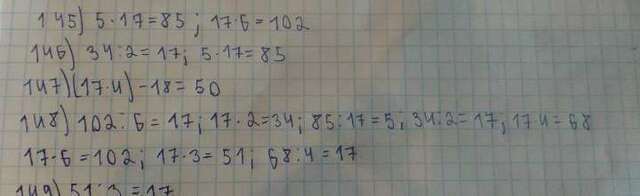 145) 5·17=85; 17·6=102
146) 34:2=17; 5·17=85
147) (17·4)-18=50
148) 102:6=17; 17·2=34; 85:17=5; 34:2=17; 17·4=68
17·6=102; 17·3=51; 68:4=17
149) 51:3=17